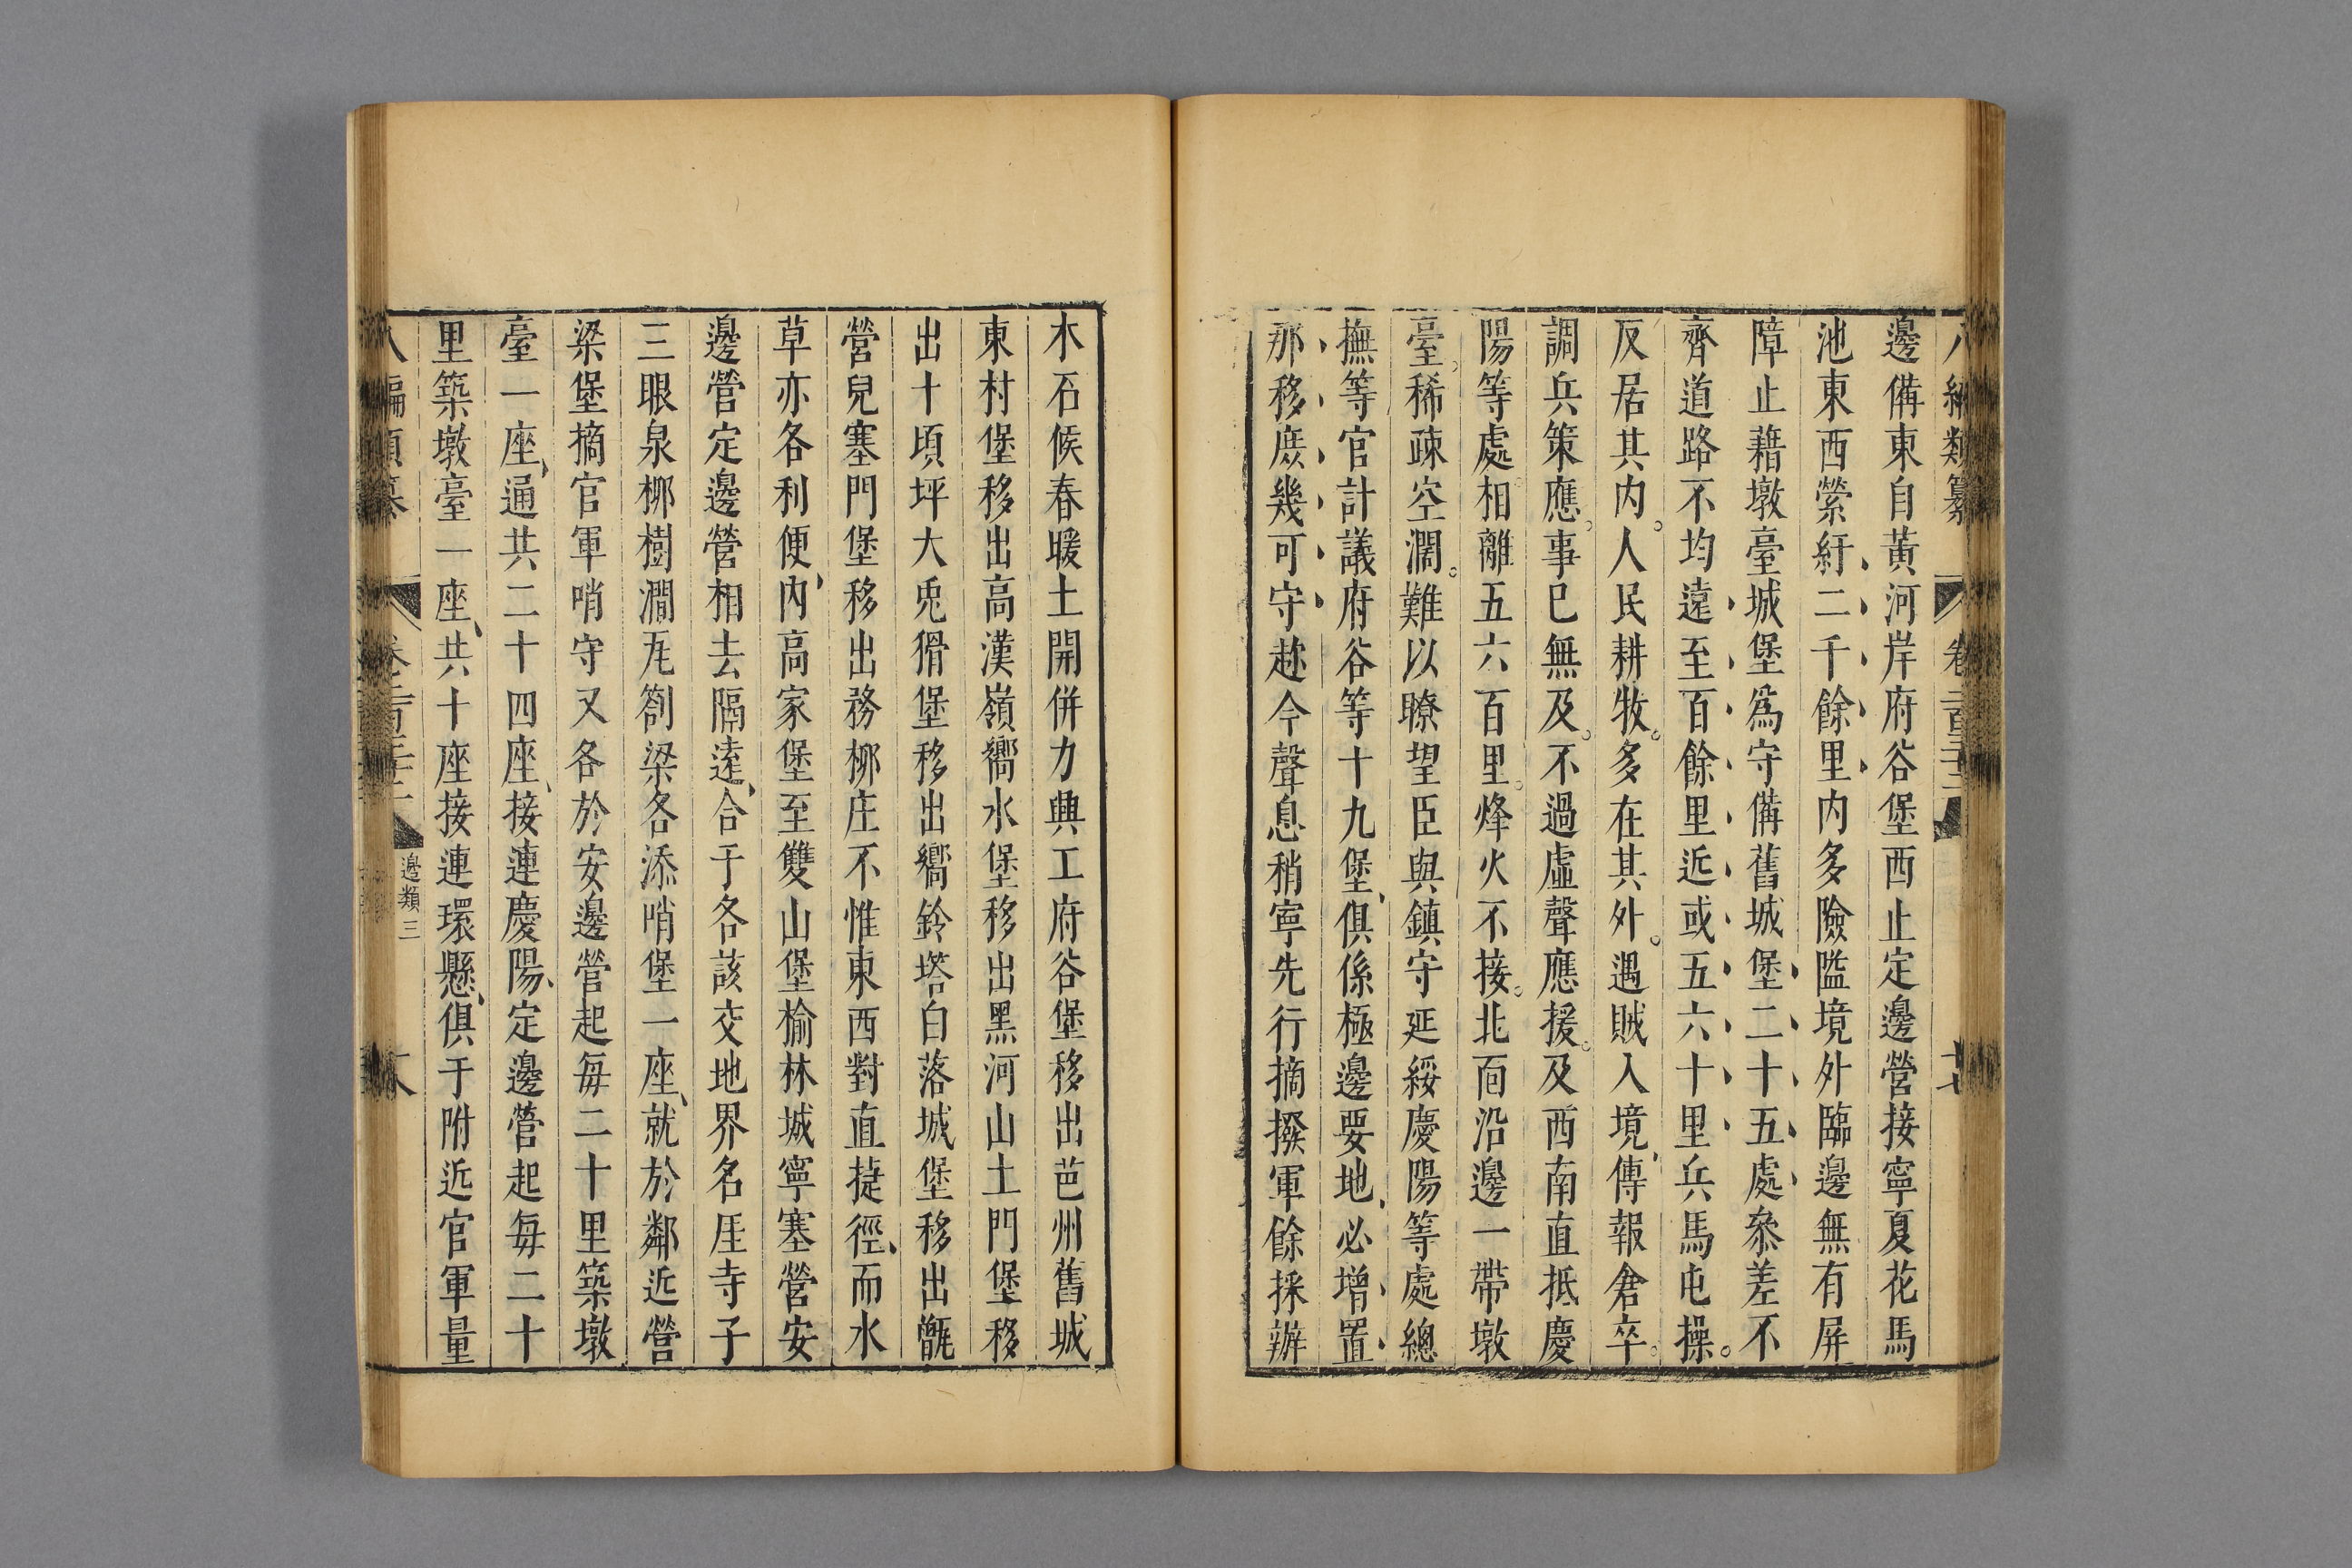 八編類纂 卷二百二十二 十七
邊備東自黃河岸府谷堡西止定邊營接寧夏花馬
池東西縈紆二千餘里內多險隘境外臨邊無有屏
障止藉墩臺城堡爲守備舊城堡二十五處叅差不
齊道路不均遠至百餘里近或五六十里兵馬屯操。
反居其內。人民耕牧。多在其外。遇賊入境、傳報倉卒。
調兵策應。事已無及。不過虛聲應援。及西南直抵慶
陽等處。相離五六百里。烽火不接。北面沿邊一帶墩
臺。稀疎空濶。難以瞭望臣與鎮守延綏慶陽等處總
撫等官計議府谷等十九堡、俱係極邊要地、必增置
那移庶幾可守趂今聲息稍寧先行摘撥軍餘採辦
木石候春暖土開併力興工府谷堡移出芭州舊城
東村堡移出高漢嶺嚮水堡移出黑河山土門堡移
出十頃坪大兎鶻堡移出嚮鈴塔白落城堡移出甎
營兒塞門堡移出務柳庄不惟東西對直㨗徑、而水
草亦各利便、內高家堡至雙山堡榆林城寧塞營安
邊營定邊營相去隔遠、合于各該交地界名厓寺子
三眼泉柳樹澗瓦劄梁各添哨堡一座、就於鄰近營
梁堡摘官軍哨守又各於安邊營起每二十里築墩
臺一座、通共二十四座、接連慶陽、定邊營起每二十
里築墩臺一座、共十座接連環懸、俱于附近官軍量
八編類纂 邊類三